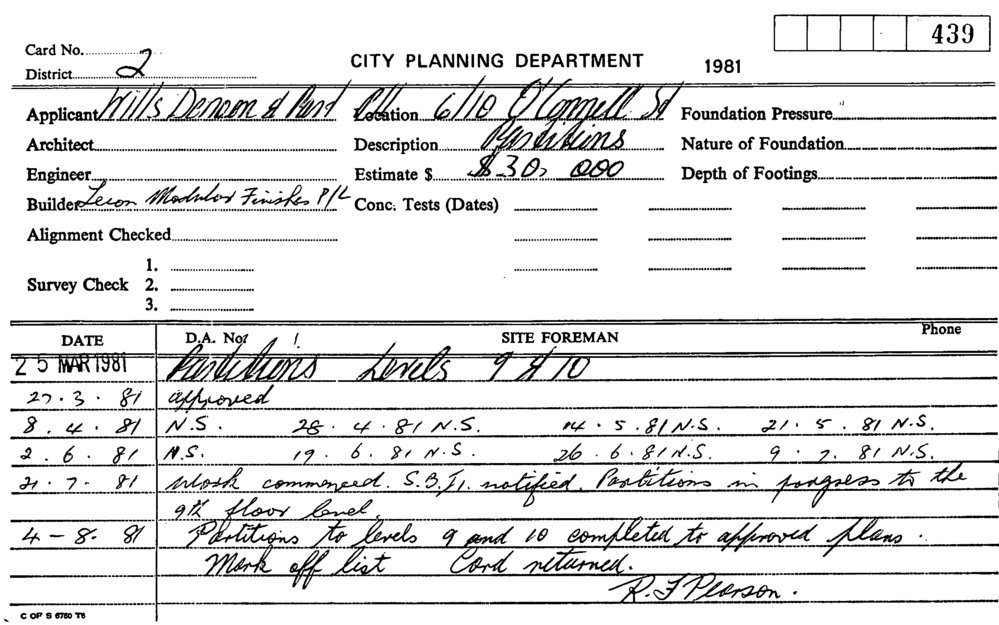 439
Card No.
District 2
CITY PLANNING DEPARTMENT 1981
Applicant Wills Denoon & Part P/L Location 6/10 O'Connell St Foundation Pressure
Architect Description Partitions Nature of Foundation
Engineer Estimate $ $30,000 Depth of Footings
Builder Modular Finishes P/L Conc. Tests (Dates)
Alignment Checked
1.
Survey Check 2.
3.
DATE D.A. No. SITE FOREMAN Phone
25 MAR 1981 Partitions Levels 9 & 10
27.3.81 approved
8.4.81 N.S. 28.4.81 N.S. 14.5.81 N.S. 21.5.81 N.S.
2.6.81 N.S. 19.6.81 N.S. 26.6.81 N.S. 9.7.81 N.S.
21.7.81 Work commenced. S.B.I. notified. Partitions in progress to the
9th floor level.
4-8-81 Partitions to levels 9 and 10 completed to approved plans.
Mark off list Card returned.
R. F Pearson.
C OF S 6760 T6